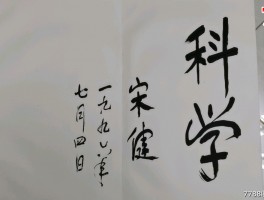 科学
宋健
一九九六年
七月四日
7788